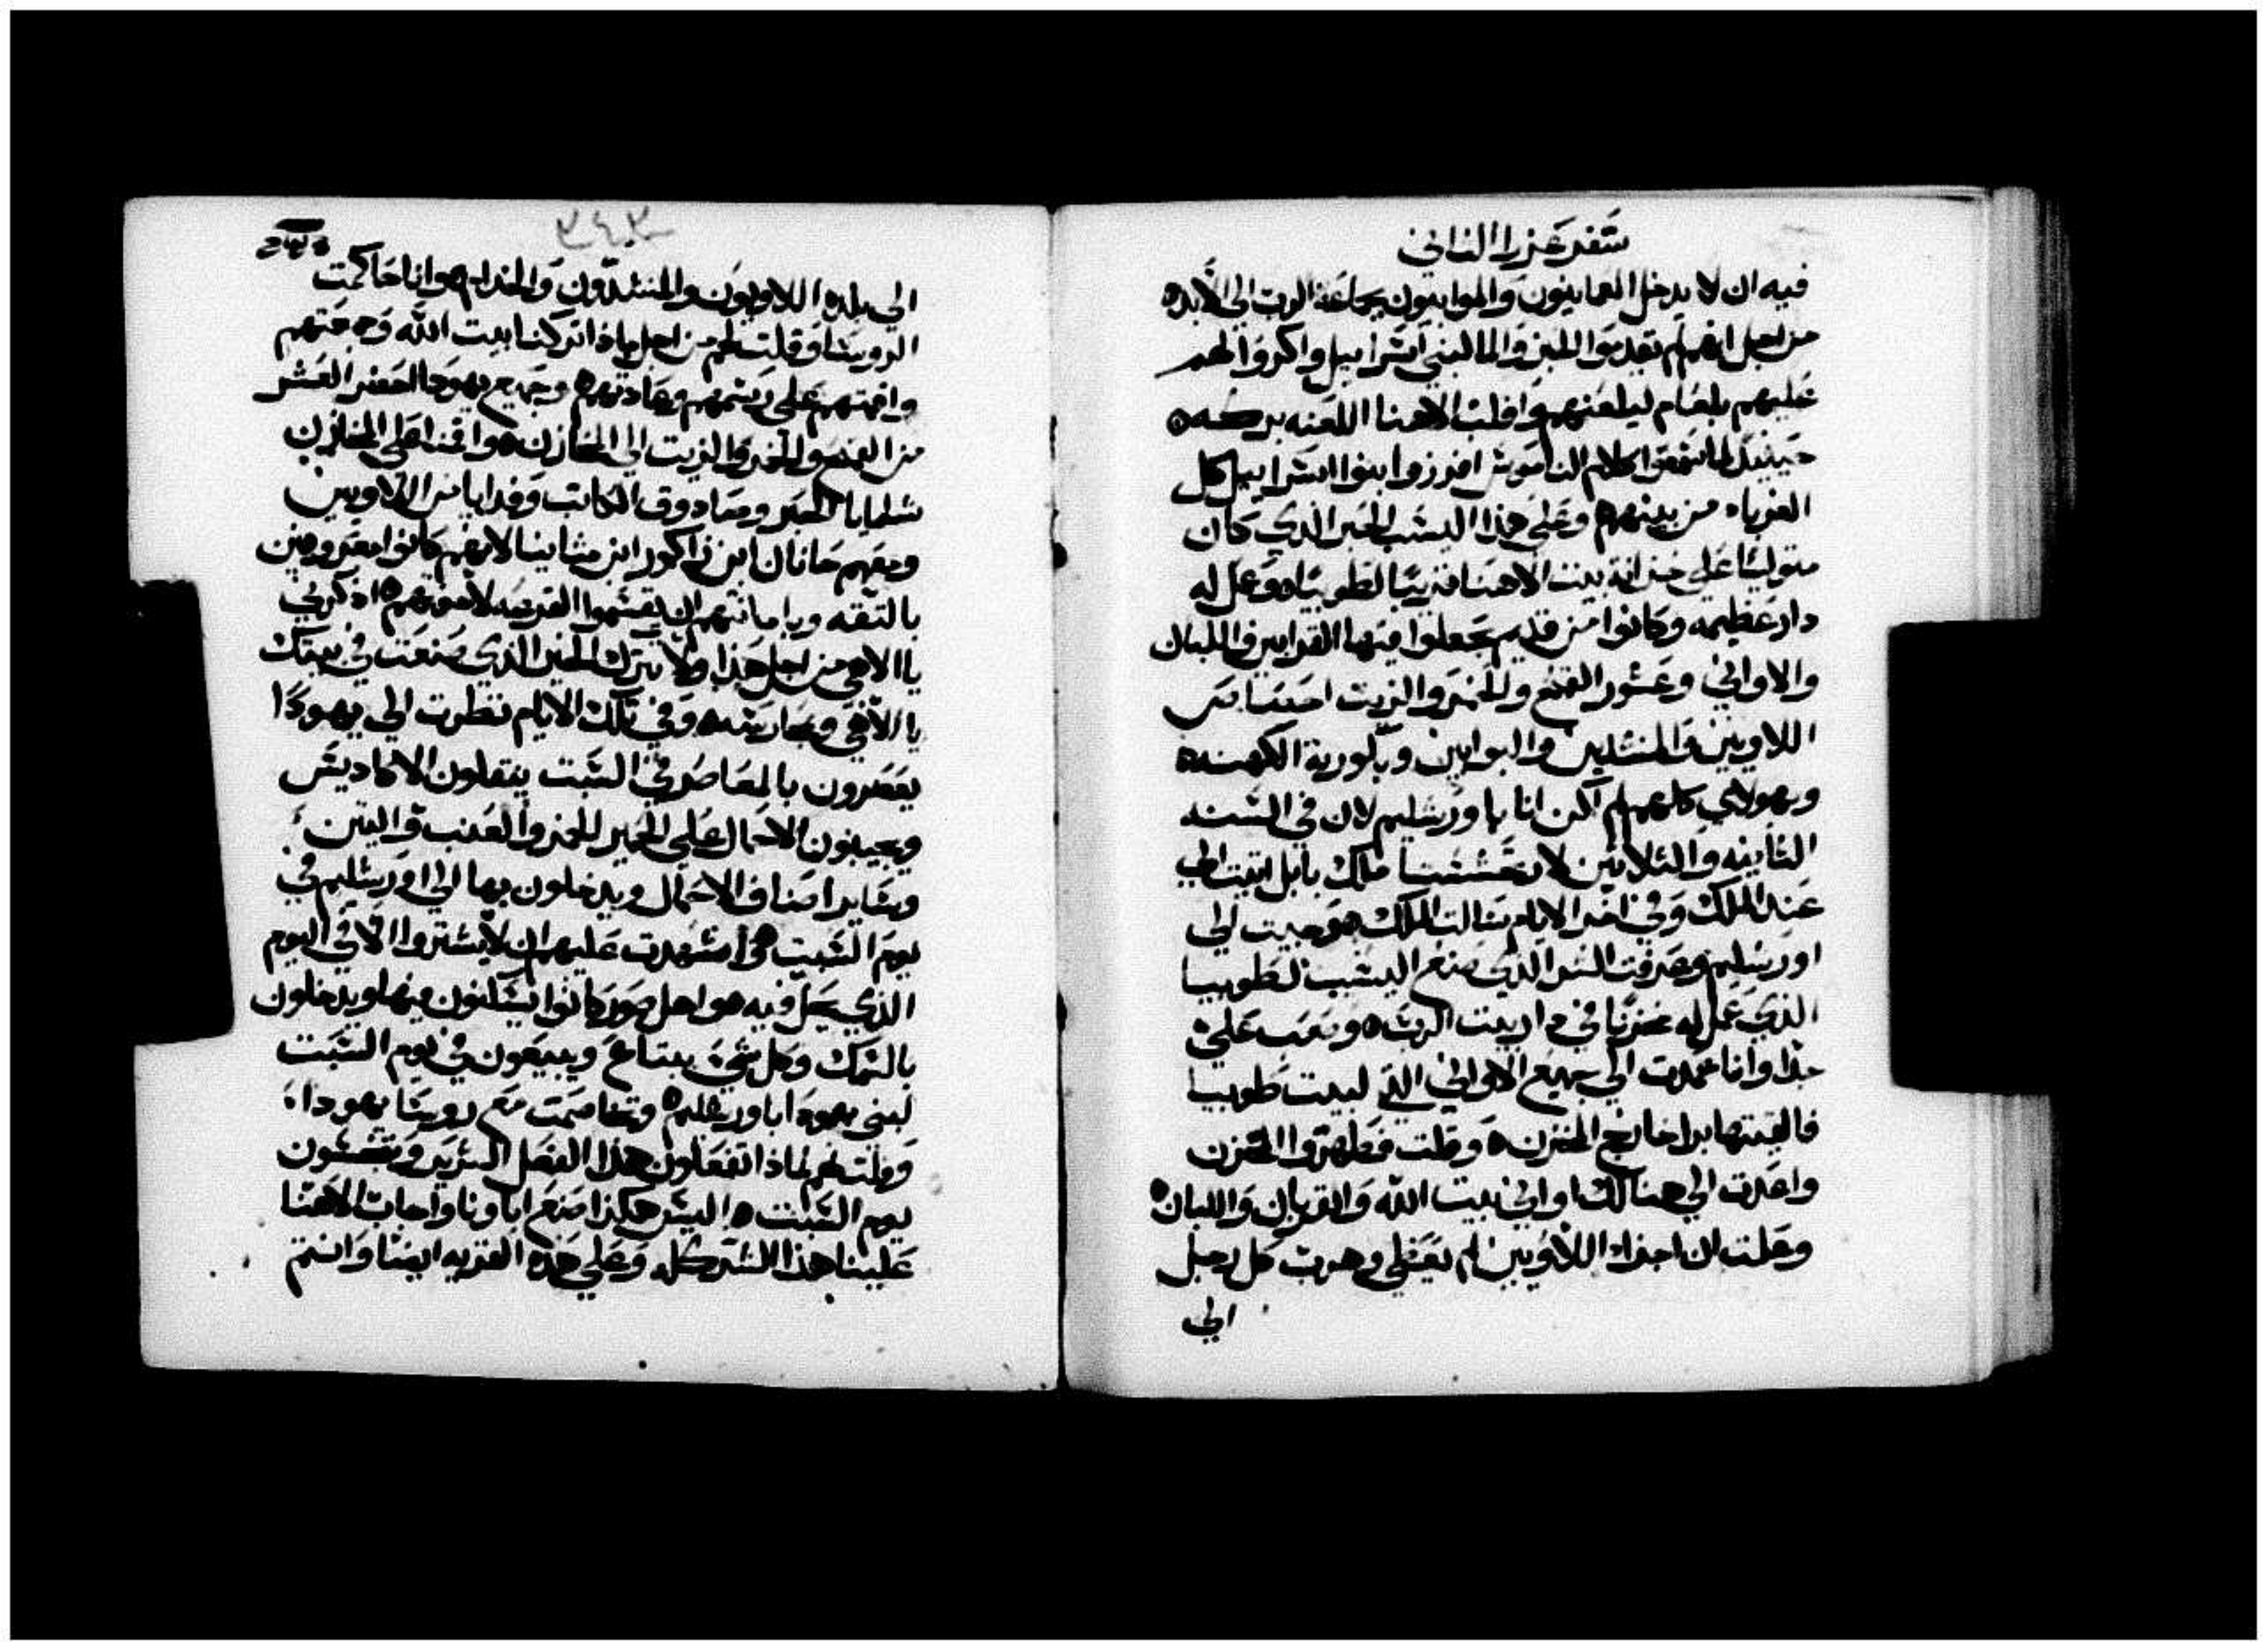 سفر عزرا الثاني
فيه ان لا يدخل العمانيون والموابيون بجماعة الرب الي الابده
من اجل انهم لم يقدموا اللبن والما لبني اسراييل واكروا لهم
عليهم بلعام ليلعنهم واقلب الاهنا اللعنه بركه ه
حينيذ لما سمعوا كلام الناموس افرزوا بنوا اسراييل كل
الغرباء من بينهم وعلي هذا اليشب الحبر الذي كان
متوليا علي خزانة بيت الاهنا قريبا لطوبياه وعمل له
دار عظيمه وكانوا من قديم يجعلوا فيها القرابين واللبان
والاواني وعشور القمح والخمر والزيت
اللاويين والمنشدين والبوابين وبكورية الكهنه ه
وبهولاي كلهم لم اكن انا باورشليم لان في السنه
الثانيه والثلاثين لارتحششتا ملك بابل اتيت الي
عند الملك وفي اخر الايام سالت الملك ه وجيت الي
اورشليم وعرفت الشر الذي صنع اليشب لطوبيا
الذي عمل له مخزنا في دار بيت الرب ه وصعب علي
جدا وانا عمدت الي جميع الاواني التي لبيت طوبيا
فالقيتها برا خارج المخزن ه وقلت فطهروا المخزن
واعدت الي هنالك اواني بيت الله والقربان واللبان ه
وعلمت ان اجزاء اللاويين لم يعطي وهرب كل رجل
الي
٢٤٣
الي بلده اللاويون والمنشدون والخدام ه وانا حاكمت
الرويسا وقلت لهم من اجل ماذا تركنا بيت الله وجمعتهم
واقمتهم علي رسمهم وعادتهم ه وجميع يهودا احضر العشر
من القمح والخمر والزيت الي المخازن ه واقمنا علي المخازن
شلمايا الحبر وصادوق الكاتب وفدايا من اللاويين
ومعهم حانان ابن زاكور ابن متانيا لانهم كانوا معروفين
بالثقه وبامانتهم ان يقسموا القرعه لاخوتهم ه اذكرني
يا الاهي من اجل هذا ولا تترك الخير الذي صنعت في بيتك
يا الاهي وبحارسته ه وفي تلك الايام نظرت الي يهودا
يعصرون بالمعاصر في السبت ينقلون الاكاديس
ويجيبون الاحمال علي الحمير للخمر والعنب والتين
وساير اصناف الاحمال ويدخلون بها الي اورشليم في
يوم السبت ه واشهدت عليهم ان لا يشتروا الا في اليوم
الذي يحل فيه ه واهل صور كانوا يسكنون فيها ويدخلون
بالسمك وكل شي يبتاع ويبيعون في يوم السبت
لبني يهودا باورشليم ه وتخاصمت مع رويسا يهوداء
وقلت لهم لماذا تفعلون هذا الفعل السرير وتنجسون
يوم السبت ه اليس هكذا صنع اباونا واجاب الاهنا
علينا هذا الشر كله وعلي هذه القريه ايضا وانتم